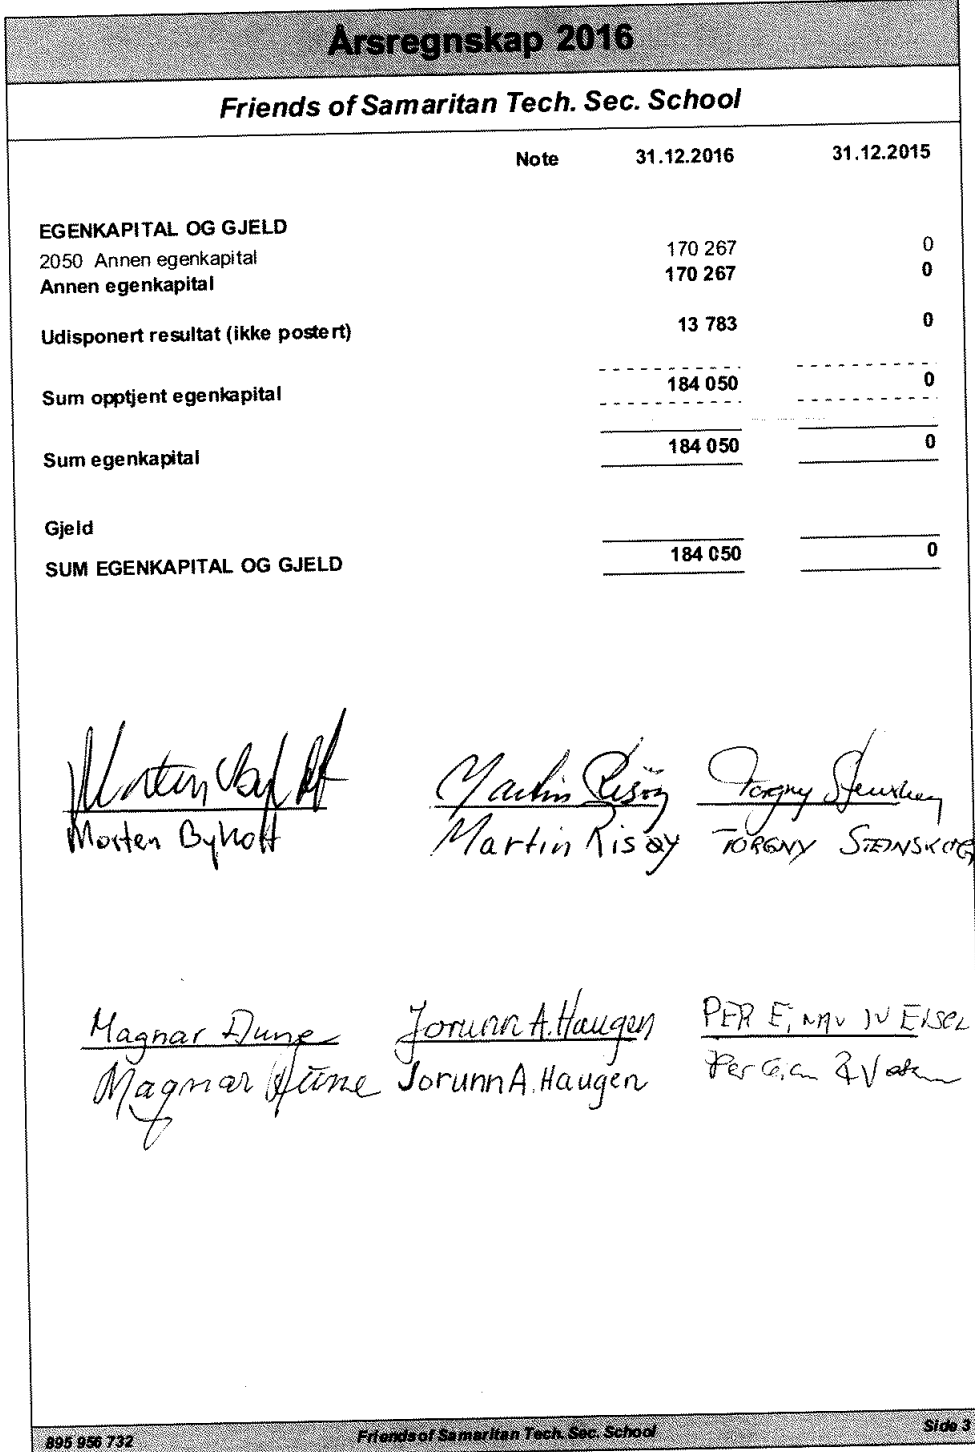 Årsregnskap 2016
Friends of Samaritan Tech. Sec. School
Note 31.12.2016 31.12.2015
EGENKAPITAL OG GJELD
2050 Annen egenkapital 170 267 0
Annen egenkapital 170 267 0
Udisponert resultat (ikke postert) 13 783 0
Sum opptjent egenkapital 184 050 0
Sum egenkapital 184 050 0
Gjeld
SUM EGENKAPITAL OG GJELD 184 050 0
Morten Martin Risøy Torgny
Morten Byholt Martin Risøy TORGNY STEINSKOG
Magnar Jorunn A. Haugen PER
Magnar Jorunn A. Haugen Per
895 956 732 Friends of Samaritan Tech. Sec. School Side 3